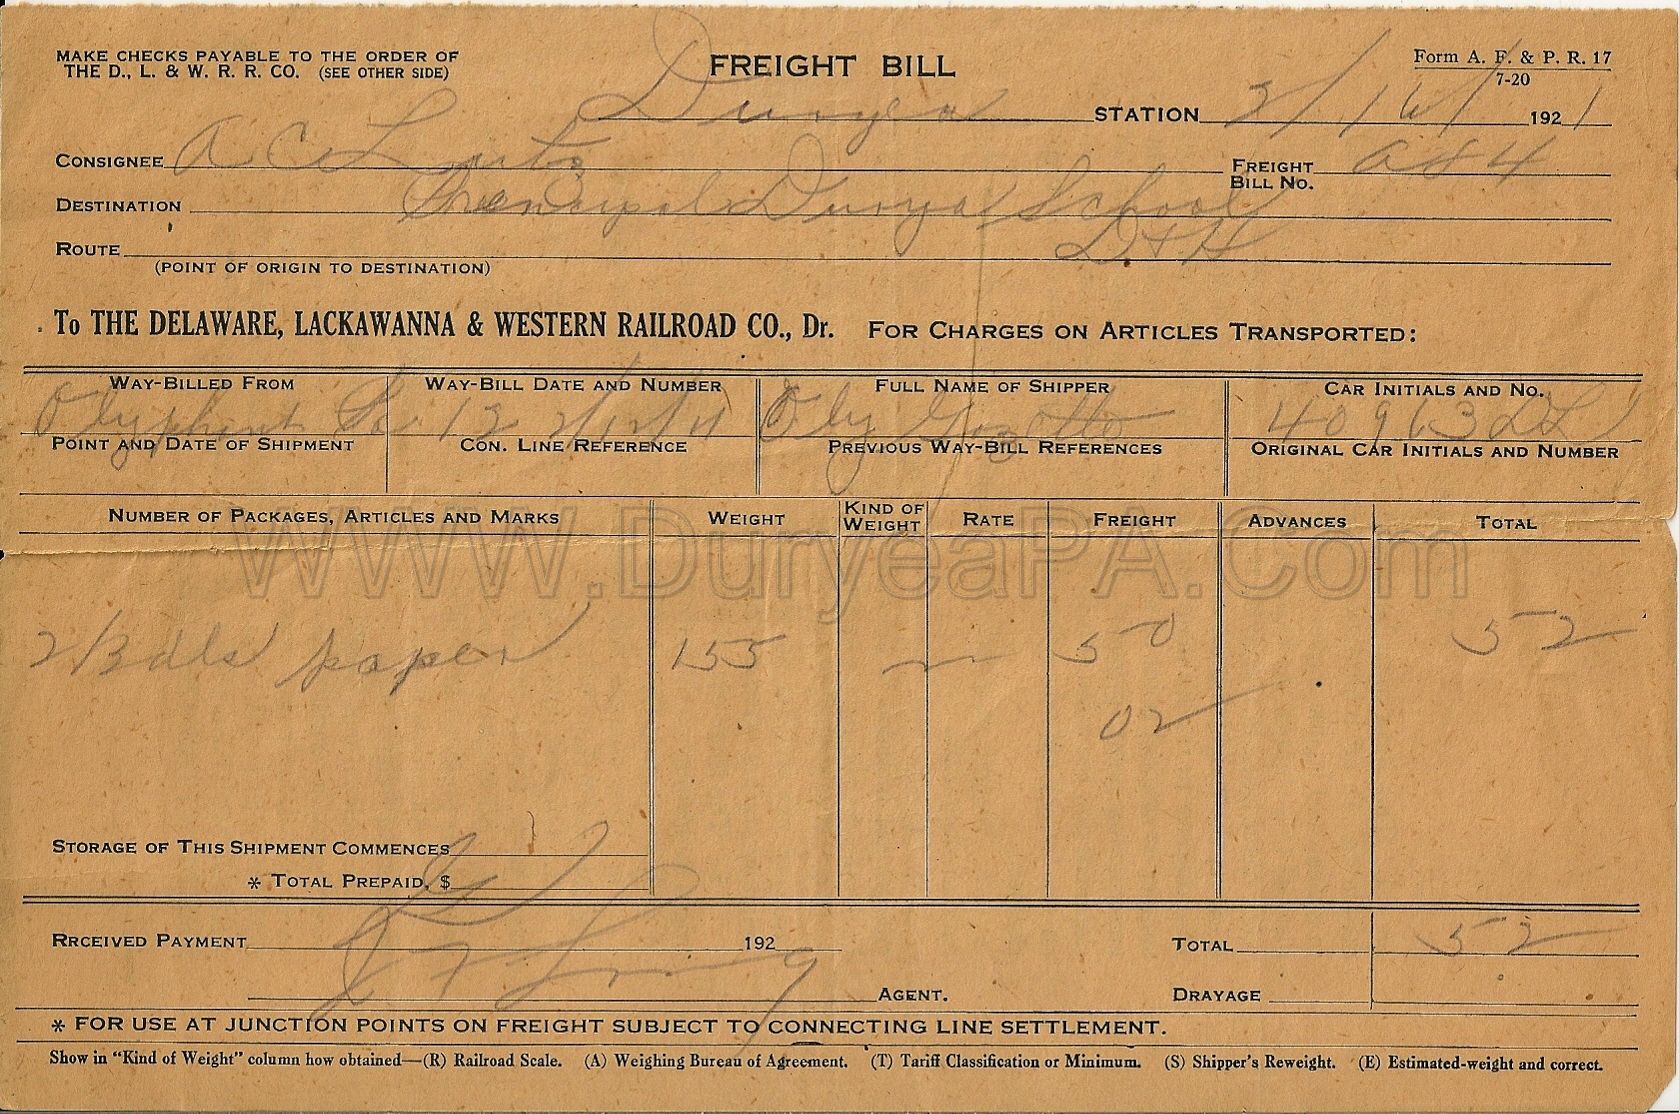 MAKE CHECKS PAYABLE TO THE ORDER OF
THE D., L. & W. R. R. CO. (SEE OTHER SIDE)
FREIGHT BILL
Form A. F. & P. R. 17
7-20
Duryea STATION 2/16/ 1921
CONSIGNEE A C
FREIGHT BILL NO. 484
DESTINATION Principal Duryea School
ROUTE D+H
(POINT OF ORIGIN TO DESTINATION)
To THE DELAWARE, LACKAWANNA & WESTERN RAILROAD CO., Dr. FOR CHARGES ON ARTICLES TRANSPORTED:
WAY-BILLED FROM WAY-BILL DATE AND NUMBER FULL NAME OF SHIPPER CAR INITIALS AND NO.
Olyphant Pa 12 2/12/ Oly 40963
POINT AND DATE OF SHIPMENT CON. LINE REFERENCE PREVIOUS WAY-BILL REFERENCES ORIGINAL CAR INITIALS AND NUMBER
NUMBER OF PACKAGES, ARTICLES AND MARKS WEIGHT KIND OF WEIGHT RATE FREIGHT ADVANCES TOTAL
WWW.DuryeaPA.Com
2 Bdls paper 155 50 52
02
STORAGE OF THIS SHIPMENT COMMENCES
* TOTAL PREPAID, $
RRCEIVED PAYMENT 192 TOTAL 52
AGENT. DRAYAGE
* FOR USE AT JUNCTION POINTS ON FREIGHT SUBJECT TO CONNECTING LINE SETTLEMENT.
Show in "Kind of Weight" column how obtained—(R) Railroad Scale. (A) Weighing Bureau of Agreement. (T) Tariff Classification or Minimum. (S) Shipper's Reweight. (E) Estimated-weight and correct.